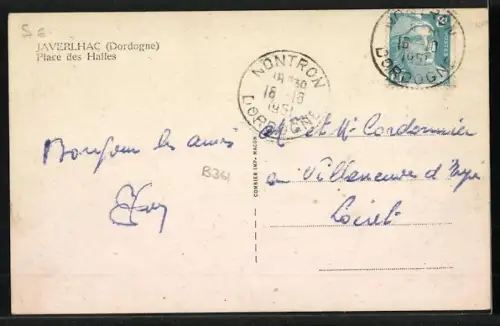 JAVERLHAC (Dordogne)
Place des Halles
NONTRON
18 30
16 - 16
1951
DORDOGNE
NONTRON
16
1951
DORDOGNE
Bonjour les amis
B361
COMBIER IMP. MACON
M et Mme Cordonnier
a Villeneuve d'
Loiret